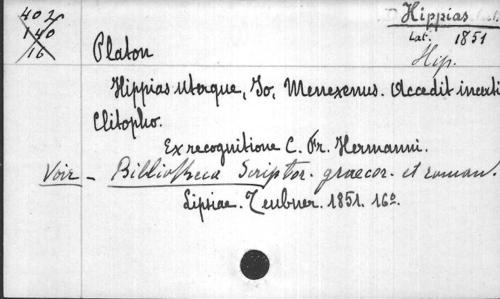 402
140
16
Hippias
Lat. 1851
Hip.
Platon
Hippias uterque, Io, Menexenus. Accedit incerti
Clitopho.
Ex recognitione C. Fr. Hermanni.
Voir - Bibliotheca Scriptor. graecor. et roman.
Lipsiae. Teubner. 1851. 16º.